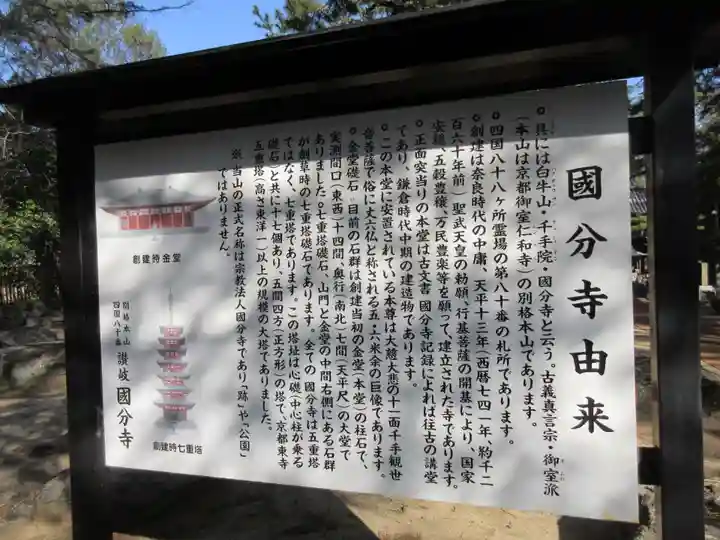 國分寺由来
◦具には白牛山・千手院・國分寺と云う。古義真言宗・御室派
（本山は京都御室仁和寺）の別格本山であります。
◦四国八十八ヶ所霊場の第八十番の札所であります。
◦創建は奈良時代の中庸、天平十三年（西暦七四一年、約千二
百六十年前）聖武天皇の勅願、行基菩薩の開基により、国家
安穏、五穀豊穣、万民豊楽等を願って建立された寺であります。
◦正面突当りの本堂は古文書 國分寺記録によれば往古の講堂
であり、鎌倉時代中期の建造物であります。
◦この本堂に安置されている本尊は大慈大悲の十一面千手観世
音菩薩で俗に丈六仏と称される五・六米余の巨像であります。
◦金堂礎石 目前の石群は創建当初の金堂（本堂）の柱石で、
実測間口（東西）十四間、奥行（南北）七間（天平尺）の大堂で
ありました。◦七重塔礎石、山門と金堂の中間右側にある石群
が創草時の七重塔礎石であります。全ての 國分寺は五重塔
ではなく、七重塔であります。この塔址は心礎（中心柱が乗る
礎石）と共に十七個あり、五間四方（正方形）の塔で、京都東寺
五重塔（高さ東洋一）以上の規模の大塔でありました。
※当山の正式名称は宗教法人國分寺であり「跡」や「公園」
ではありません。
創建時金堂
創建時七重塔
別格本山
四国八十番
讃岐 國分寺